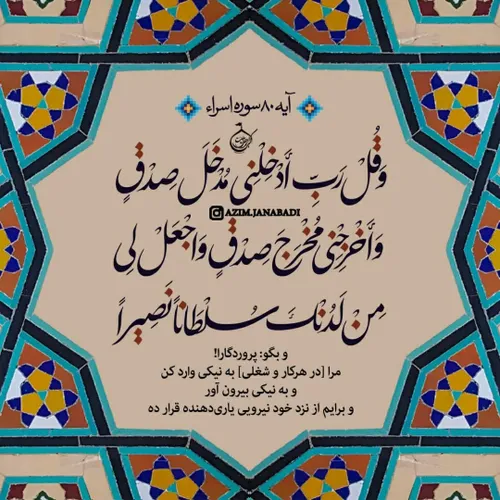 آیه ۸۰ سوره اسراء
وَقُل رَبِّ أَدْخِلْنِی مُدْخَلَ صِدْقٍ
AZIM.JANABADI
وَأَخْرِجْنِی مُخْرَجَ صِدْقٍ وَاجْعَلْ لِی
مِنْ لَدُنْكَ سُلْطَاناً نَصِیراً
و بگو: پروردگارا!
مرا [در هرکار و شغلی] به نیکی وارد کن
و به نیکی بیرون آور
و برایم از نزد خود نیرویی یاری‌دهنده قرار ده